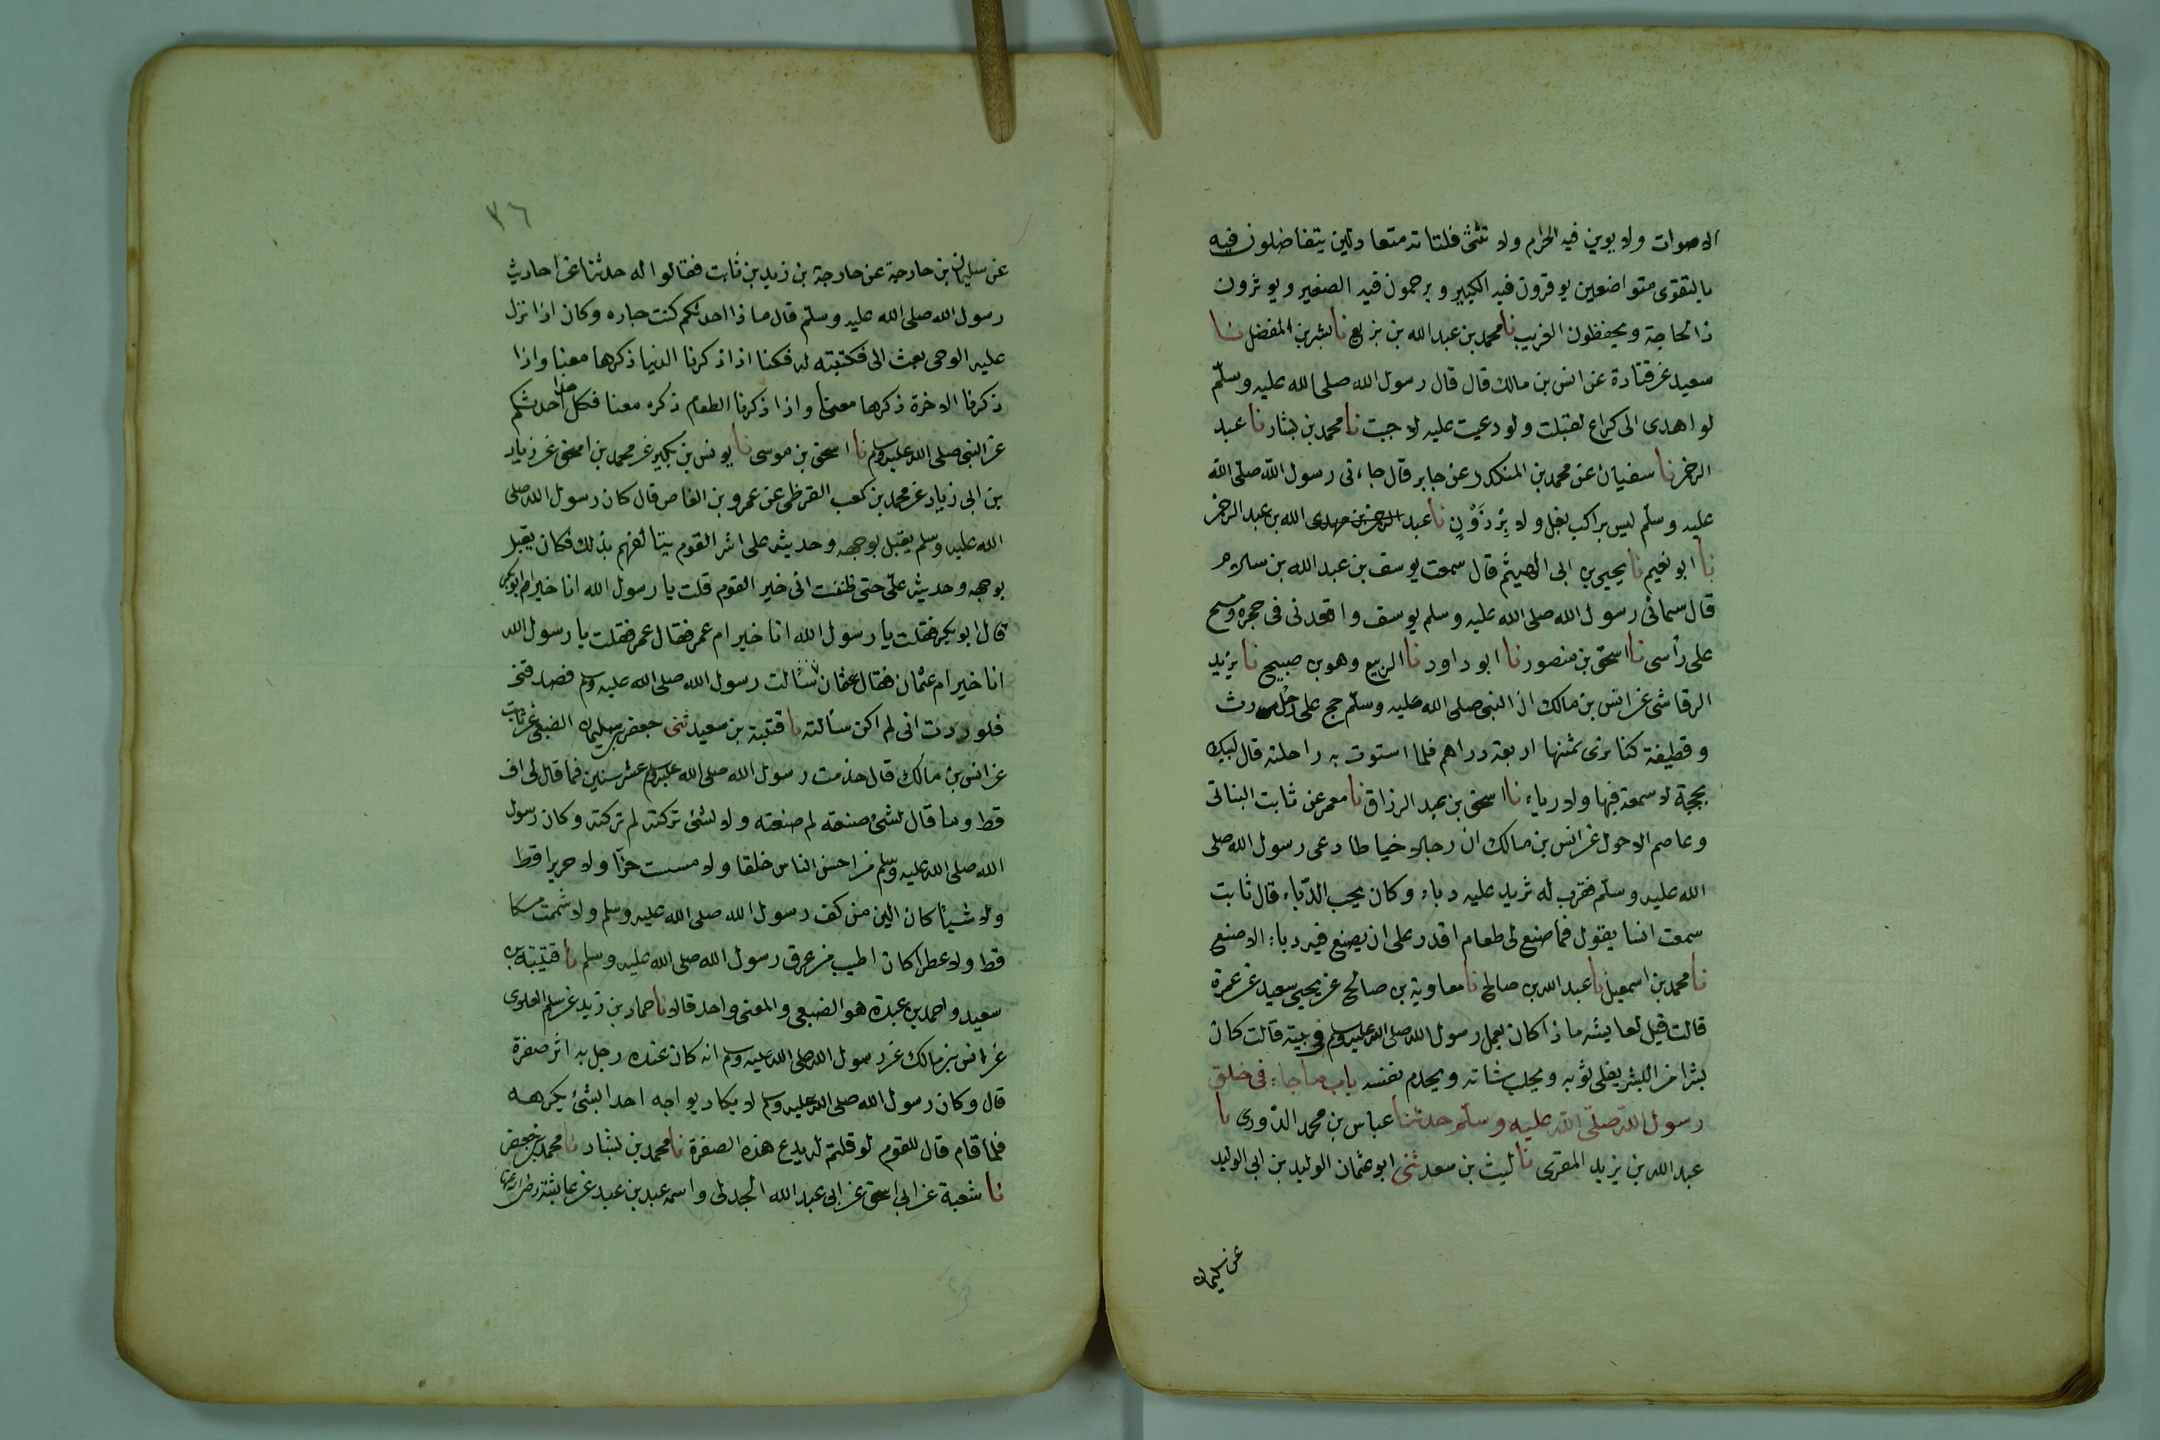 الاصوات ولا يوبن فيه الحرام ولا تنثى فلتاته متعادلين يتفاضلون فيه
بالتقوى متواضعين يوقرون فيه الكبير ويرحمون فيه الصغير ويوثرون
ذا الحاجة ويحفظون الغريب نا محمد بن عبد الله بن بزيع نا بشر بن المفضل نا
سعيد عن قتادة عن انس بن مالك قال قال رسول الله صلى الله عليه وسلّم
لو اهدى الى كراع لقبلت ولو دعيت عليه لاجبت نا محمد بن بشار نا عبد
الرحمن نا سفيان عن محمد بن المنكدر عن جابر قال جاءنى رسول الله صلى الله
عليه وسلّم ليس براكب بغل ولا بِرْذَوْنٍ نا عبد الرحمن بن مهدى الله بن عبد الرحمن
نا ابو نعيم نا يحيى بن ابى الهيثم قال سمعت يوسف بن عبد الله بن سلام
قال سمانى رسول الله صلى الله عليه وسلم يوسف واقعدنى فى حجره ومسح
على رأسى نا اسحق بن منصور نا ابو داود نا الربيع وهو بن صبيح نا يزيد
الرقاشى عن انس بن مالك ان النبى صلى الله عليه وسلّم حج على رحل رث
وقطيفة كنا نرى ثمنها اربعة دراهم فلما استوت به راحلته قال لبيك
بحجة لا سمعة فيها ولا رياء نا اسحق بن عبد الرزاق نا معمر عن ثابت البنانى
وعاصم الاحول عن انس بن مالك ان رجلا خياطا دعى رسول الله صلى
الله عليه وسلّم فقرب له ثريد عليه دباء وكان يحب الدّباء قال ثابت
سمعت انسا يقول فما صنع لى طعام اقدر على ان يصنع فيه دباء الا صنع
نا محمد بن اسمعيل نا عبد الله بن صالح نا معاوية بن صالح عن يحيى سعيد عن عمرة
قالت قيل لعايشه ماذا كان يعمل رسول الله صلى الله عليه وسلم فى بيته قالت كان
بشرا من البشر يفلى ثوبه ويحلب شاته ويخدم نفسه باب ما جاء فى خلق
رسول الله صلّى الله عليه وسلّم حدثنا عباس بن محمد الدّورى نا
عبد الله بن يزيد المقرى نا ليث بن سعد ثنى ابو عثمان الوليد بن ابى الوليد
عن سليمان
٣٦
عن سليمان بن خارجة عن خارجة بن زيد بن ثابت فقالوا له حدثنا عن احاديث
رسول الله صلى الله عليه وسلّم قال ماذا احدثكم كنت جاره وكان اذا نزل
عليه الوحى بعث الى فكتبته له فكنا اذا ذكرنا الدنيا ذكرها معنا واذا
ذكرنا الاخرة ذكرها معنا واذا ذكرنا الطعام ذكره معنا فكل هذا احدثكم
عن النبى صلى الله عليه وسلم نا اسحق بن موسى نا يونس بن بكير عن محمد بن اسحق عن زياد
بن ابى زياد عن محمد بن كعب القرظى عن عمرو بن العاص قال كان رسول الله صلى
الله عليه وسلم يقبل بوجهه وحديثه على اشر القوم يتالفهم بذلك فكان يقبل
بوجهه وحديثه علىّ حتى ظننت انى خير القوم قلت يا رسول الله انا خير ام ابو بكر
قال ابو بكر فقلت يا رسول الله انا خير ام عمر فقال عمر فقلت يا رسول الله
انا خير ام عثمان فقال عثمان سالت رسول الله صلى الله عليه وسلم فصدقنى
فلوددت انى لم اكن سألته نا قتيبة بن سعيد ثنى جعفر بن سليمان الضبعى عن ثابت
عن انس بن مالك قال خدمت رسول الله صلى الله عليه وسلم عشر سنين فما قال لى اف
قط وما قال لشئ صنعته لم صنعته ولا لشئ تركته لم تركته وكان رسول
الله صلى الله عليه وسلم من احسن الناس خلقا ولا مسست خزّا ولا حريرا قط
ولا شيئا كان الين من كف رسول الله صلى الله عليه وسلم ولا شممت مسكا
قط ولا عطرا كان اطيب من عرق رسول الله صلى الله عليه وسلم نا قتيبة بن
سعيد واحمد بن عبدة هو الضبعى والمعنى واحد قالا نا حماد بن زيد عن سلم العلوى
عن انس بن مالك عن رسول الله صلى الله عليه وسلم انه كان عنده رجل به اثر صفرة
قال وكان رسول الله صلى الله عليه وسلم لا يكاد يواجه احدا بشئ يكرهه
فلما قام قال للقوم لو قلتم له يدع هذه الصفرة نا محمد بن بشار نا محمد بن جعفر
نا شعبة عن ابى اسحق عن ابى عبد الله الجدلى واسمه عبد بن عبد عن عايشة رضى الله عنها